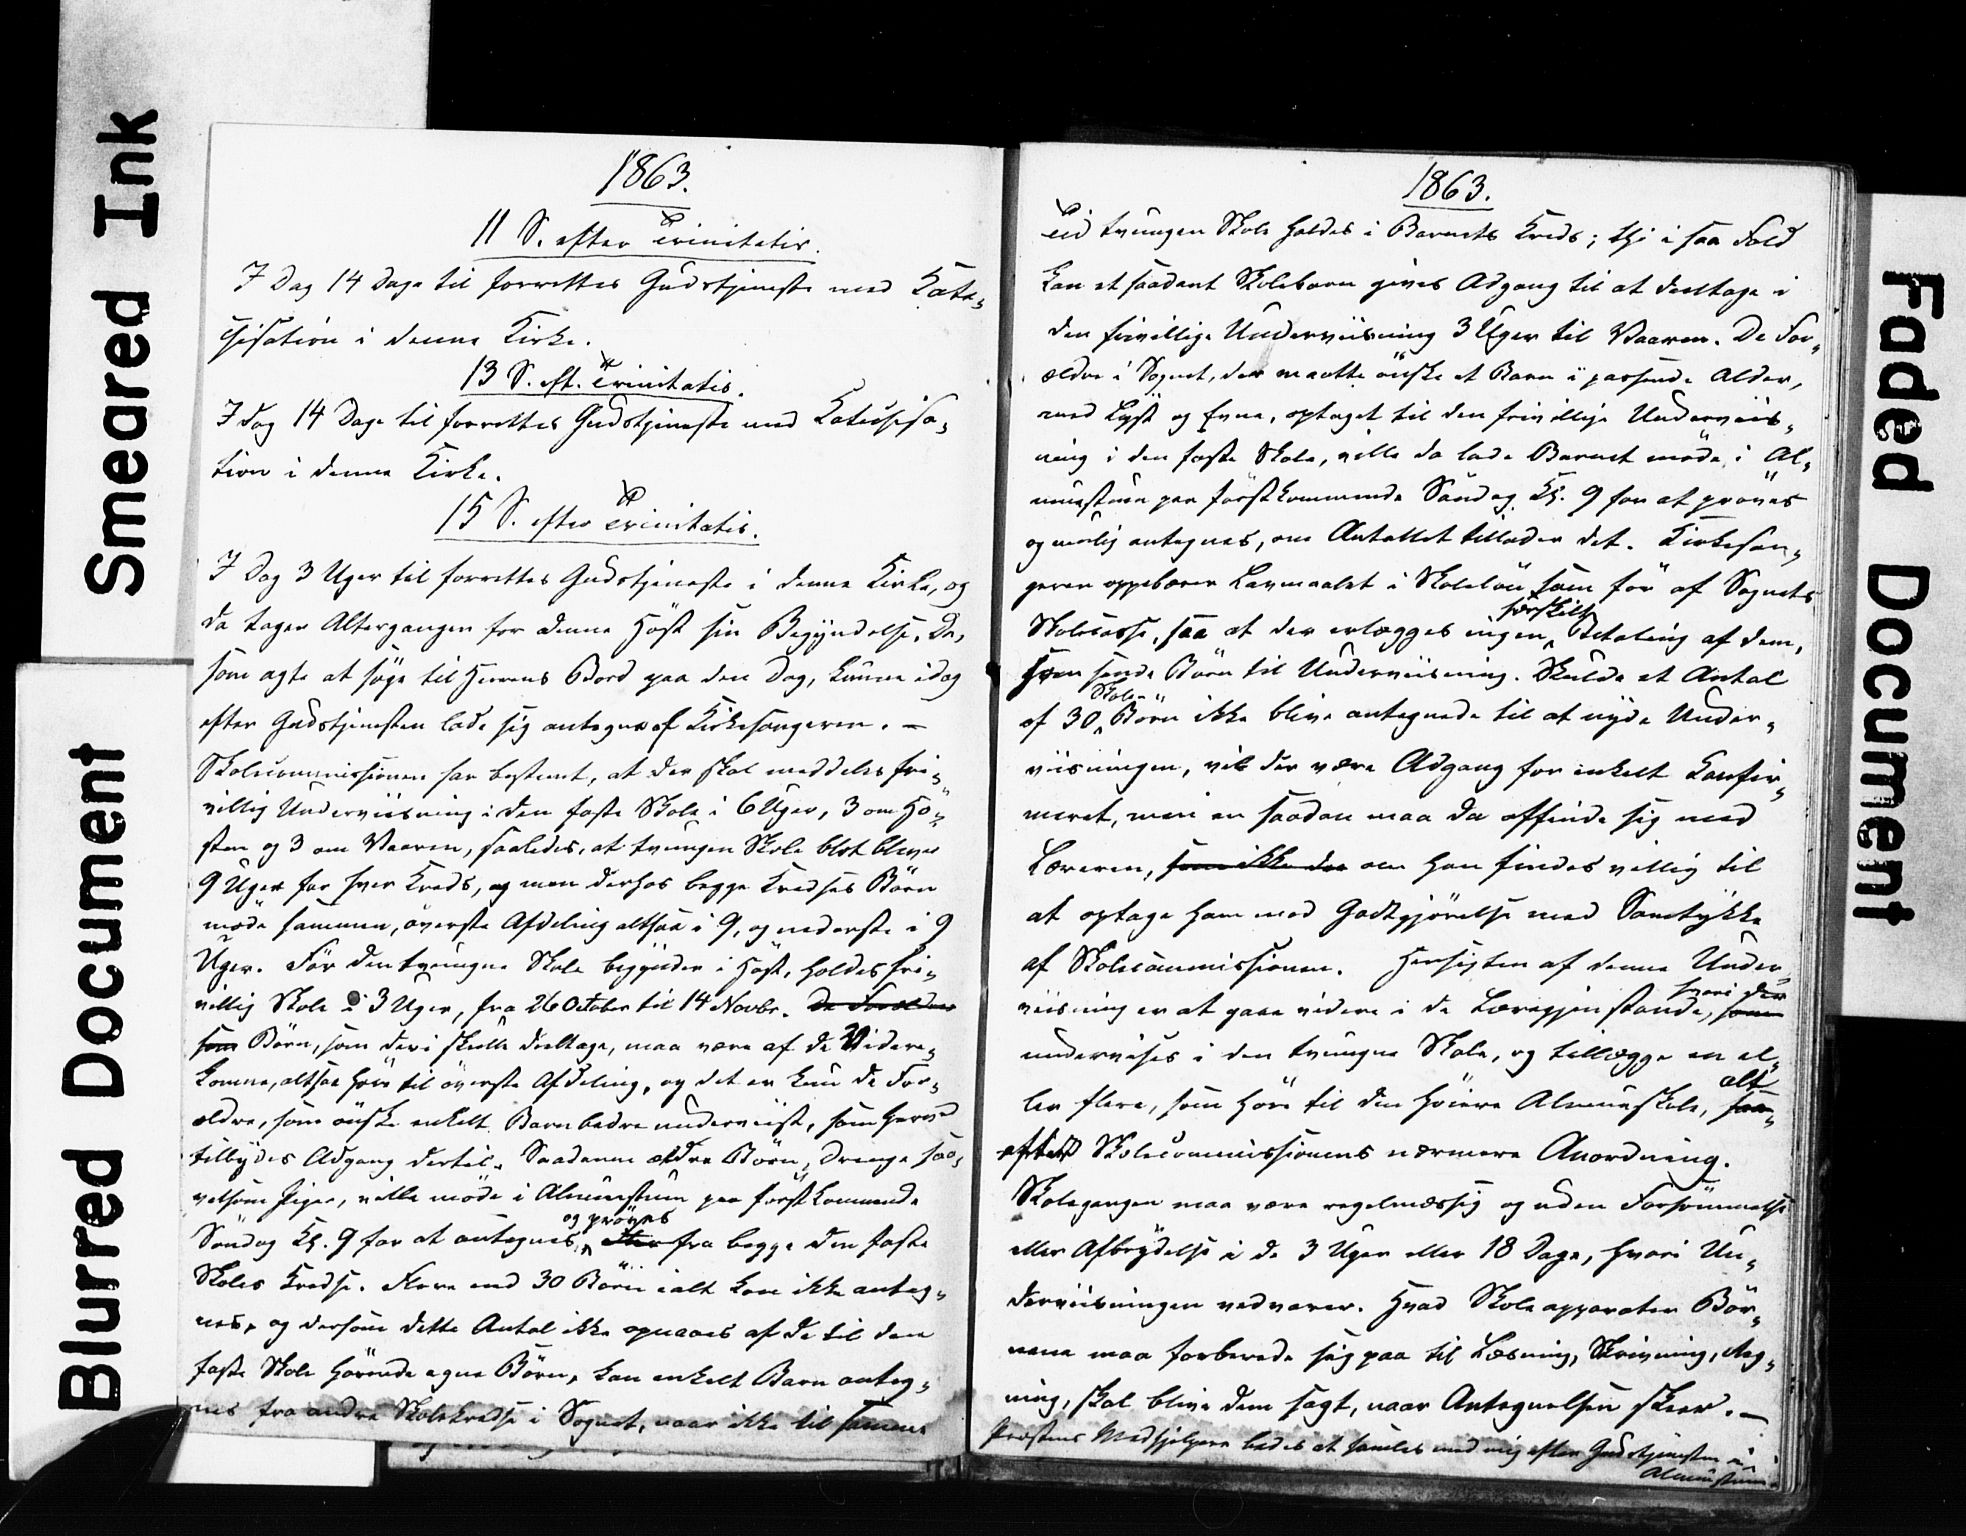 Smeared Ink
Blurred Document
Faded Document
1863.
11 S. efter Trinitatis.
I Dag 14 Dage til forrettes Gudstjeneste med Kate-
chisation i denne Kirke.
13 S. eft. Trinitatis.
I dag 14 Dage til forrettes Gudstjeneste med Katechisa-
tion i denne Kirke.
15 S. efter Trinitatis.
I Dag 3 Uger til forrettes Gudstjeneste i denne Kirke, og
da tager Altergangen for denne Høst sin Begyndelse. De,
som agte at søge til Herrens Bord paa den Dag, kunne idag
efter Gudstjenesten lade sig antegne af Kirkesangeren. —
Skolecommissionen har bestemt, at der skal meddeles fri-
villig Underviisning i den faste Skole i 6 Uger, 3 om Hø-
sten og 3 om Vaaren, saaledes, at tvungen Skole blot bliver
9 Uger for hver Kreds, og men derhos begge Kredses Børn
møde sammen, øverste Afdeling altsaa i 9, og nederste i 9
Uger. Før den tvungne Skole begynder i Høst, holdes fri-
villig Skole i 3 Uger, fra 26 October til 14 Novbr. De Forældre
som Børn, som deri skulle deeltage, maa være af de Videre-
komne, altsaa høre til øverste Afdeling, og det er kun de For-
ældre, som ønske enkelt Barn bedre underviist, som herved
tilbydes Adgang dertil. Saadanne ældre Børn, Drenge saa-
velsom Piger, ville møde i Almuestuen paa førstkommende
og prøves
Søndag Kl. 9 for at antegnes, fra begge den faste
Skoles Kredse. Flere end 30 Børn ialt kan ikke anteg-
nes, og dersom dette Antal ikke opnaaes af de til den
faste Skole hørende egne Børn, kan enkelt Barn anteg-
nes fra andre Skolekredse i Sognet, naar ikke til samme
1863.
Tid tvungen Skole holdes i Barnets Kreds; thi i saa Fald
kan et saadant Skolebarn gives Adgang til at deeltage i
den frivillige Underviisning 3 Uger til Vaaren. De For-
ældre i Sognet, der maatte ønske et Barn i passende Alder,
med Lyst og Evne, optaget til den frivillige Underviis-
ning i den faste Skole, ville da lade Barnet møde i Al-
muestuen paa førstkommende Søndag Kl. 9 for at prøves
og muelig antegnes, om Antallet tillader det. Kirkesan-
geren oppebærer Lavmaalet i Skoleløn som før af Sognets
særskilt
Skolecasse, saa at der erlægges ingen Betaling af dem,
som sende Børn til Underviisning. Skulde et Antal
Skole-
af 30 Børn ikke blive antegnede til at nyde Under-
viisningen, vil der være Adgang for enkelt Konfir-
meret, men en saadan maa da affinde sig med
Læreren, som ikke der om han findes villig til
at optage ham mod Godtgjørelse med Samtykke
af Skolecommissionen. Hensigten af denne Under-
hvori der
viisning er at gaae videre i de Læregjenstande, som
undervises i den tvungne Skole, og tillægge en el-
alt
ler flere, som høre til den høiere Almueskole, saa-
efter Skolecommissionens nærmere Anordning.
Skolegangen maa være regelmæssig og uden Forsømmelse
eller Afbrydelse i de 3 Uger eller 18 Dage, hvori Un-
derviisningen vedvarer. Hvad Skoleapparater Bør-
nene maa forberede sig paa til Læsning, Skrivning, Reg-
ning, skal blive dem sagt, naar Antegnelsen skeer. —
Præstens Medhjelpere bedes at samles med mig efter Gudstjenesten i
Almuestuen.